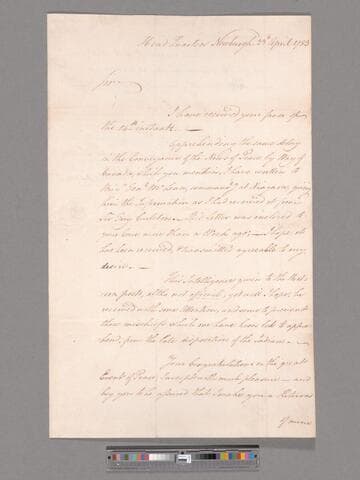 Head Quarters Newburgh 23d April 1783
Sir
I have received your favor of
the 14th instant. —
Apprehending the same delay
in the Conveyance of the News of Peace by Way of
Canada, which you mention, I have written to
McLean, commandg at Niagara, giving
him the Information as I had received it, from
Sir Guy Carleton. — This Letter was inclosed to
your care more than a Week ago; — I hope it
has been received, & transmitted agreeable to my
desire. —
This Intelligence given to the
posts, altho not official, yet will I hope, be
received with some Attention, and serve to prevent
those mischiefs which we have been led to appre
hend, from the late disposition of the Indians. —
Your Congratulations on the great
Event of Peace, I accept with much pleasure — and
beg you to be assured that I make you a Return
of mine